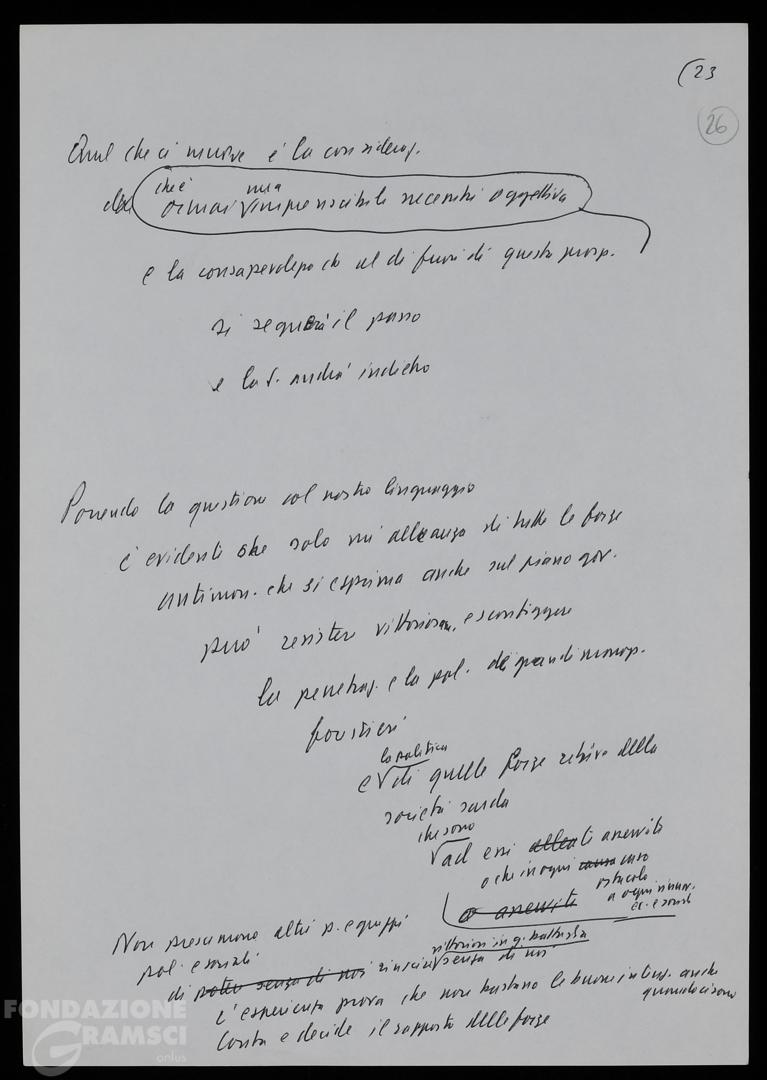 (23
26
Quel che ci muove è la consideraz.
che è una
che ormai √ imprescindibile necessità oggettiva
e la consapevolezza che al di fuori di questa prosp.
si segnerà il passo
e la S. andrà indietro
Ponendo la questione col nostro linguaggio
è evidente che solo un'alleanza di tutte le forze
antimon. che si esprima anche sul piano gov.
può resistere vittoriosam. e sconfiggere
la penetraz. e la pol. dei grandi monop.
forestieri
la politica
e √ di quelle forze retrive della
società sarda
che sono
√ ad essi alleati asservite
o che in ogni caso caso
ostacolo
o asservite a ogni rinnov.
ec. e social
Non presumono altri p. e gruppi
pol. e sociali
vittoriosi in q. battaglia
di poter senza di noi riuscire √ senza di noi
L'esperienza prova che non bastano le buone intenz. anche
quando ci sono
Conta e decide il rapporto delle forze
FONDAZIONE
GRAMSCI
onlus